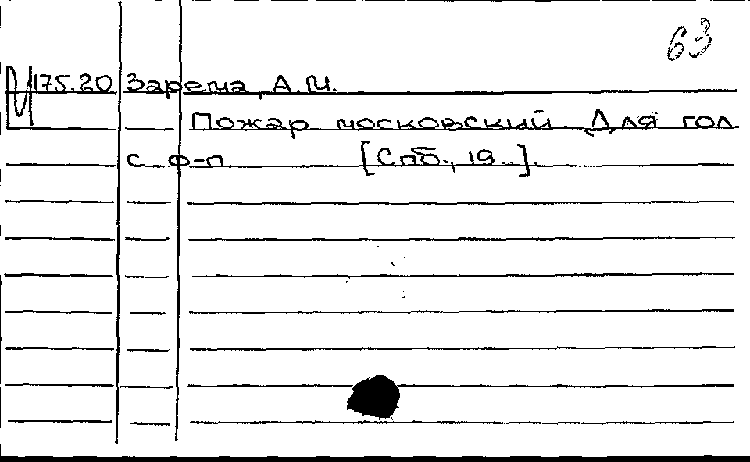 63
М 175.20 Зарема, А.М.
Пожар московский Для гол
с ф-п [Спб., 19..].